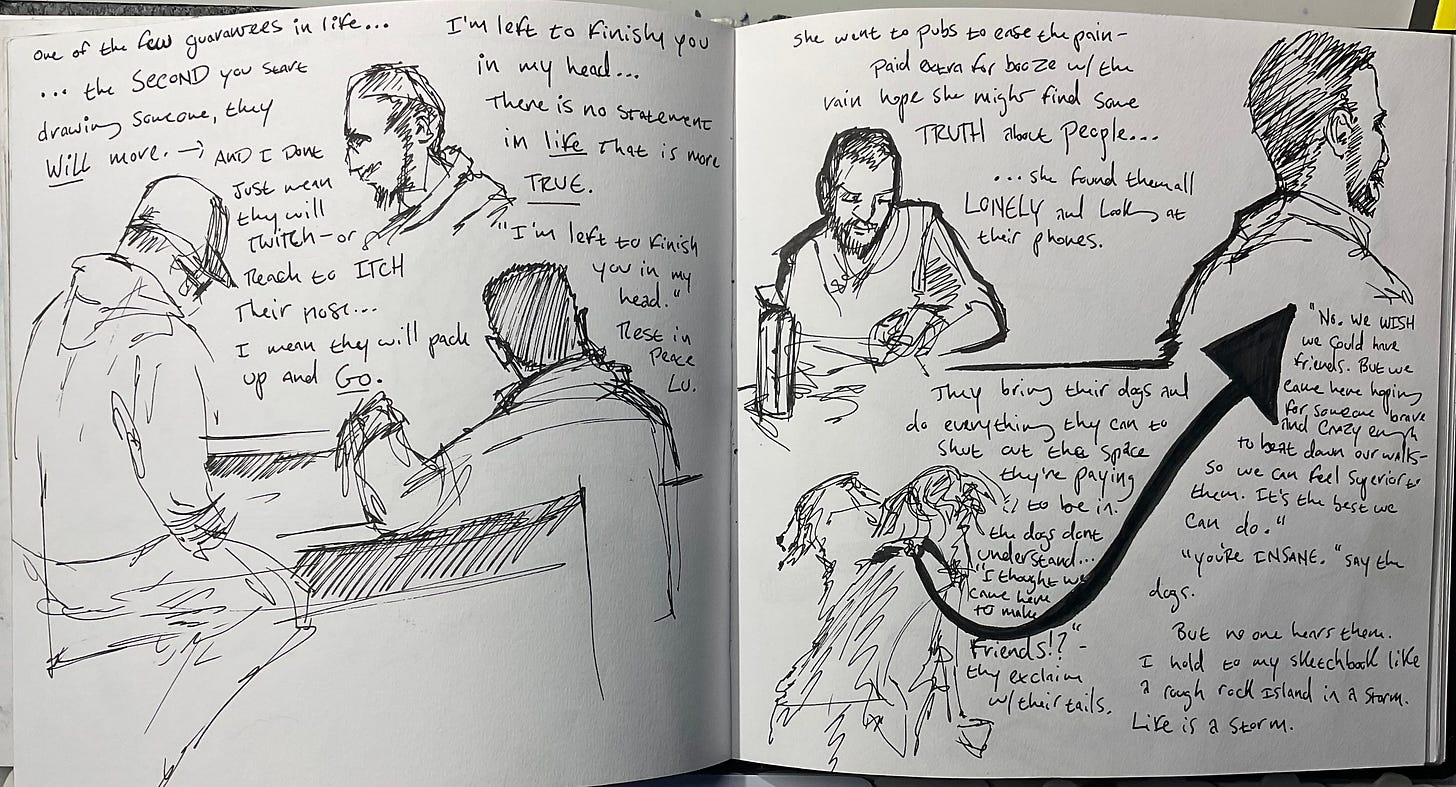 one of the few guarantees in life...
... the SECOND you start
drawing someone, they
Will move. → AND I DONT
Just mean
they will
twitch - or
Reach to ITCH
Their nose...
I mean they will pack
up and Go.
I'm left to finish you
in my head...
There is no statement
in life That is more
TRUE.
"I'm left to finish
you in my
head."
Rest in
Peace
Lu.
She went to pubs to ease the pain -
paid extra for booze w/ the
vain hope she might find some
TRUTH about people...
... she found them all
LONELY and looking at
their phones.
They bring their dogs and
do everything they can to
shut out the space
they're paying
to be in.
the dogs dont
understand...
"I thought we
came here
to make
Friends!?" -
they exclaim
w/ their tails.
"No. we WISH
we could have
friends. But we
came here hoping
for someone brave
and CRAZY enough
to beat down our walls -
So we can feel superior to
them. It's the best we
can do."
"you're INSANE." say the
dogs.
But no one hears them.
I hold to my sketchbook like
a rough rock Island in a storm.
Life is a storm.